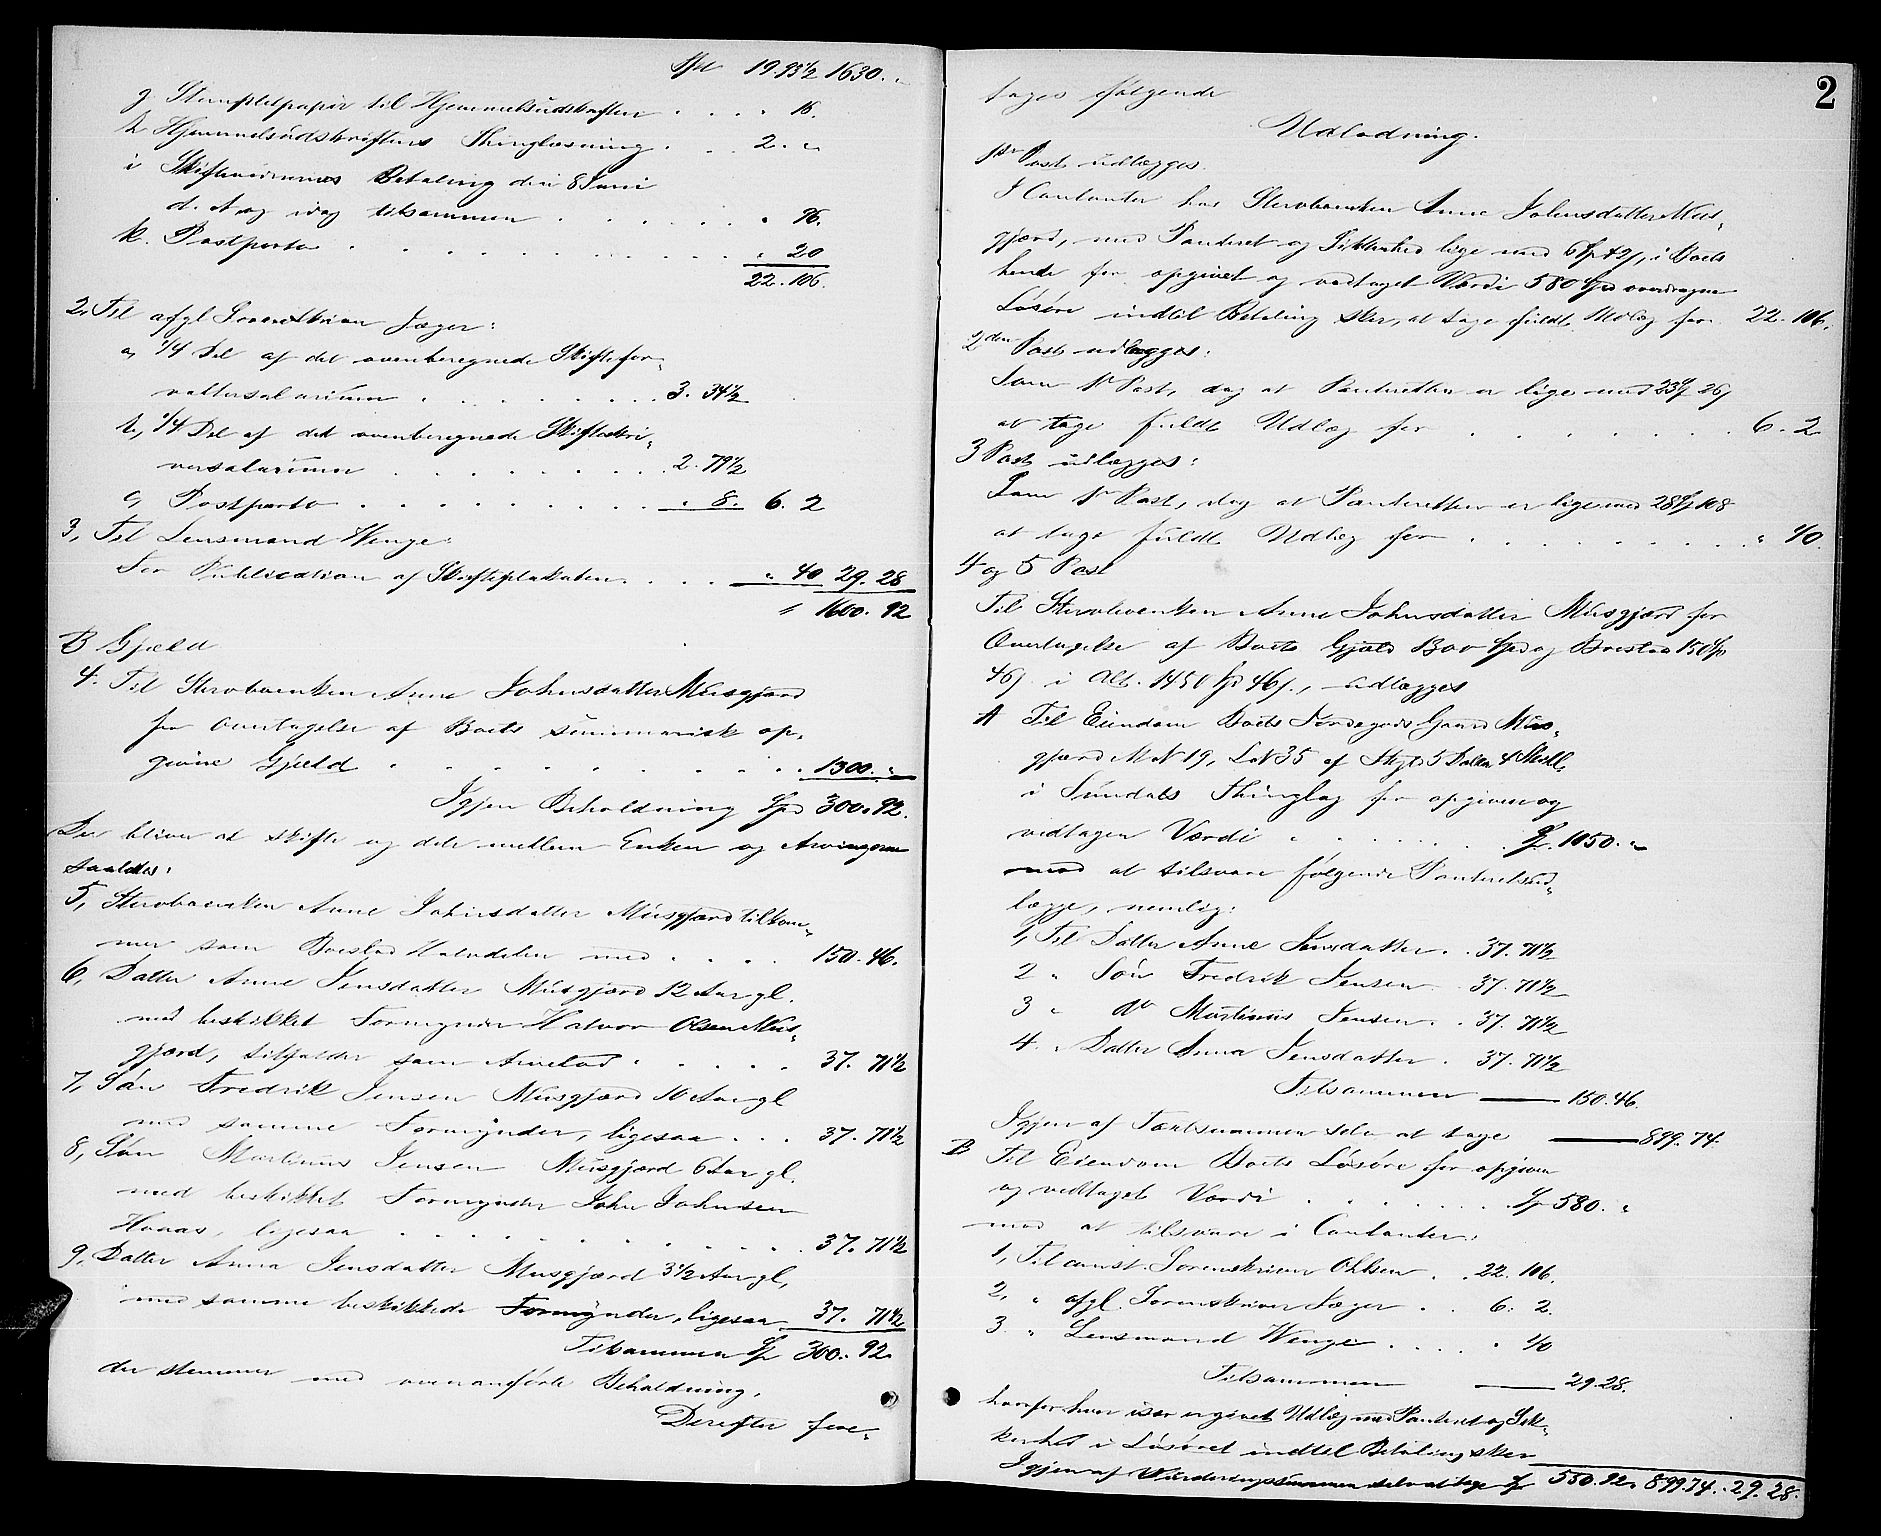 Spd 19.93½ 1630. "
g, Stempletpapir til Hjemmelsudskriften . . . " 16.
h Hjemmelsudskriftens Thinglæsning . . . 2. "
i Skiftevidnernes Betaling den 8 Juni
d. A. og idag tilsammen . . . . . . " 96.
k. Postporto . . . . . . . . . . " 20
22. 106.
2, Til afgl Sorenskriver Jæger:
a, 1/4 Del af det ovenberegnede Skiftefor-
valtersalarium . . . . . . . 3. 34½
b, 1/4 Del af det ovenberegnede Skifteskri-
versalarium . . . . . . . . 2. 79½
c, Postporto . . . . . . . . . " 8. 6. 2
3, Til Lensmand Wenge:
For Publication af Skifteplakaten . . . " 40 29. 28
" 1600. 92
B Gjæld
4. Til Stervboenken Anne Johnsdatter Musgjærd
for Overtagelse af Boets summarisk op-
givne Gjæld . . . . . . . . . 1300. "
Igjen Beholdning Spd 300. 92.
Der bliver at skifte og dele mellem Enken og Arvingerne
saaledes:
5, Stervboenken Anne Johnsdatter Musgjærd tilkom-
mer som Boeslod Halvdelen med . . . . 150. 46.
6, Datter Anne Jensdatter Musgjærd 12 Aar gl.
med beskikket Formynder Halvor Olsen Mus-
gjærd, tilfalder som Arvelod . . . . . 37. 71½
7, Søn Fredrik Jensen Musgjærd 10 Aar gl
med samme Formynder, ligesaa . . . 37. 71½
8, Søn Martinus Jensen Musgjærd 6 Aar gl.
med beskikket Formynder John Johnsen
Hoaas, ligesaa . . . . . . . . . . 37. 71½
9, Datter Anna Jensdatter Musgjærd 3½ Aar gl,
med samme beskikkede Formynder, ligesaa 37. 71½
Tilsammen Sp 300. 92.
der stemmer med ovenanførte Beholdning.
Derefter fore-
2
toges følgende
Udlodning.
1ste Post udlægges.
I Contanter hos Stervboenken Anne Johnsdatter Mus-
gjærd, med Panteret og Sikkerhed lige med i Boets
hende for opgivet og vedtaget Værdi 580 Spd overdragne
Løsøre indtil Betaling sker, at tage fuldt Udlæg for 22. 106.
2den Post udlægges:
Som 1ste Post, dog at Panteretten er lige med
at tage fuldt Udlæg for . . . . . . . 6. 2
3 Post udlægges:
Som 1ste Post, dog at Panteretten er lige med
at tage fuldt Udlæg for . . . . . . . . " 40.
4 og 5 Post
Til Stervboenken Anne Johnsdatter Musgjærd for
Overtagelse af Boets Gjæld 1300 Spd og Boeslod 150 Sp
46 s. i Alt. 1450 Sp 46 s., udlægges
A Til Eiendom Boets Jordegods Gaard Mus-
gjærd M N 19, L N 35 af Skyld 5 Daler 4 Skill
i Sundals Thinglag for opgiven og
vedtagen Værdi . . . . . . . Sp. 1050. "
mod at tilsvare følgende Panteretsud-
lægge, nemlig:
1, Til Datter Anne Jensdatter . . 37. 71½
2 " Søn Fredrik Jensen . . 37. 71½
3 " do Martinus Jensen . . 37. 71½
4. " Datter Anna Jensdatter . 37. 71½
Tilsammen — 150. 46.
Igjen af Taxtsummen selv at tage — 899. 74.
B Til Eiendom Boets Løsøre for opgiven
og vedtaget Værdi . . . . . . . Sp 580. "
mod at tilsvare i Contanter:
1, Til const. Sorenskriver Ohlsen . . 22. 106.
2, " afgl. Sorenskriver Jæger . . 6. 2.
3. " Lensmand Wenge . . . . . " 40
Tilsammen — 29. 28.
hvorfor hver især er givet Udlæg med Panteret og Sik-
kerhed i Løsøret indtil Betaling sker
Igjen af Vurderingssummen selv at tage Sp 550. 92. 899. 74. 29. 28.